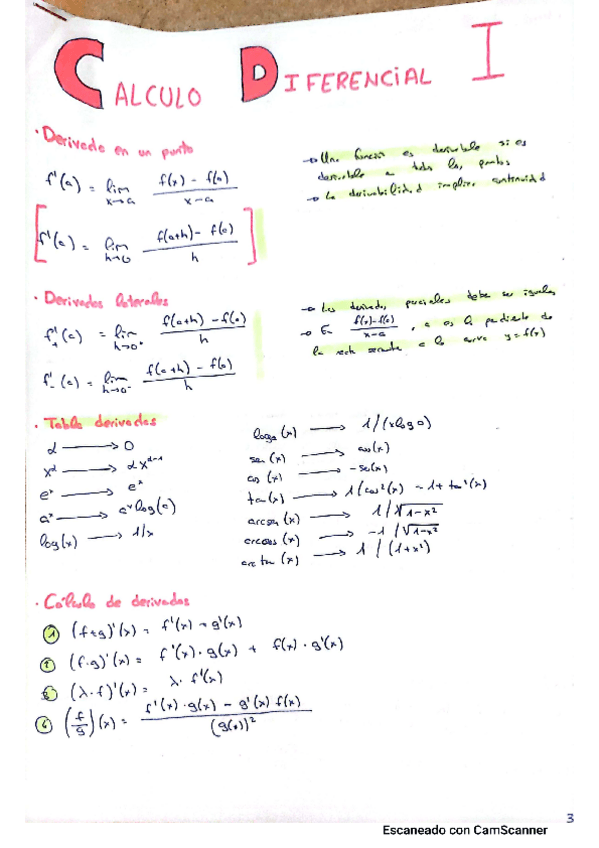 CALCULO DIFERENCIAL I
· Derivada en un punto
f'(a) = lim x→a f(x) - f(a) / x-a
f'(a) = lim h→0 f(a+h) - f(a) / h
→ Una función es derivable si es
derivable en todos los puntos
→ La derivabilidad implica continuidad
· Derivadas laterales
f'₊(a) = lim h→0⁺ f(a+h) - f(a) / h
f'₋(a) = lim h→0⁻ f(a+h) - f(a) / h
→ Las derivadas parciales debe ser iguales
→ En f(x)-f(a) / x-a , a es la pendiente de
la recta secante a la curva y=f(x)
· Tabla derivadas
α → 0
x^α → αx^(α-1)
eˣ → eˣ
aˣ → aˣ log(a)
log(x) → 1/x
logₐ(x) → 1/(x log a)
sen(x) → cos(x)
cos(x) → -se(x)
tan(x) → 1/cos²(x) = 1+tan²(x)
arcsen(x) → 1/√1-x²
arccos(x) → -1/√1-x²
arctan(x) → 1/(1+x²)
· Cálculo de derivadas
(f+g)'(x) = f'(x) + g'(x)
(f·g)'(x) = f'(x)·g(x) + f(x)·g'(x)
(λ·f)'(x) = λ·f'(x)
(f/g)(x) = f'(x)·g(x) - g'(x) f(x) / (g(x))²
3
Escaneado con CamScanner